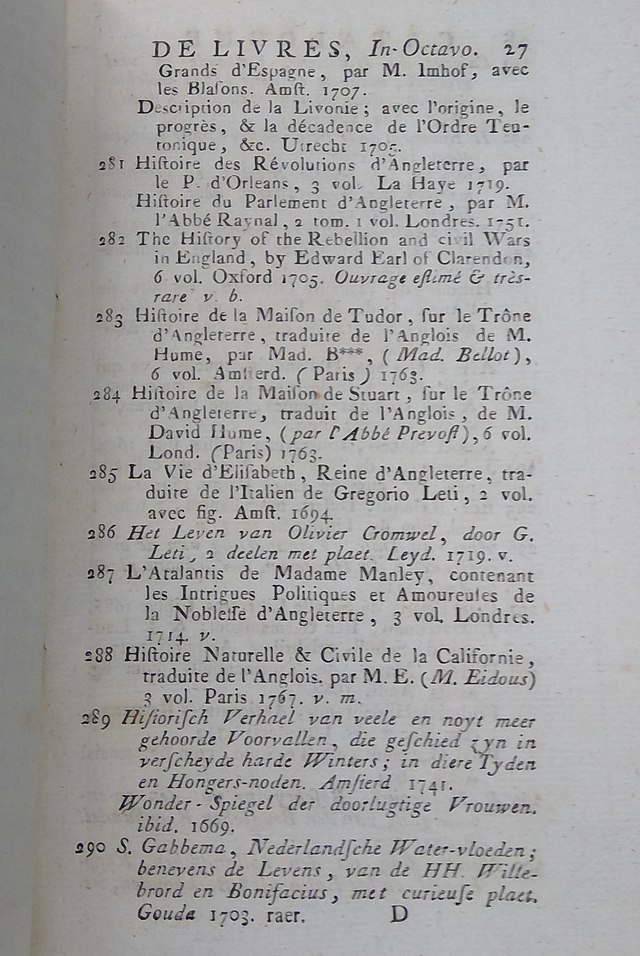 DE LIVRES, In-Octavo. 27
Grands d'Espagne, par M. Imhof, avec
les Blaſons. Amſt. 1707.
Deſcription de la Livonie; avec l'origine, le
progrès, & la décadence de l'Ordre Teu-
tonique, &c. Utrecht 1705.
281 Hiſtoire des Révolutions d'Angleterre, par
le P. d'Orleans, 3 vol. La Haye 1719.
Hiſtoire du Parlement d'Angleterre, par M.
l'Abbé Raynal, 2 tom. 1 vol. Londres. 1751.
282 The Hiſtory of the Rebellion and civil Wars
in England, by Edward Earl of Clarendon,
6 vol. Oxford 1705. Ouvrage eſtimé & très-
rare v. b.
283 Hiſtoire de la Maiſon de Tudor, ſur le Trône
d'Angleterre, traduite de l'Anglois de M.
Hume, par Mad. B***, (Mad. Bellot),
6 vol. Amſterd. (Paris) 1763.
284 Hiſtoire de la Maiſon de Stuart, ſur le Trône
d'Angleterre, traduit de l'Anglois, de M.
David Hume, (par l'Abbé Prevoſt), 6 vol.
Lond. (Paris) 1763.
285 La Vie d'Eliſabeth, Reine d'Angleterre, tra-
duite de l'Italien de Gregorio Leti, 2 vol.
avec fig. Amſt. 1694.
286 Het Leven van Olivier Cromwel, door G.
Leti, 2 deelen met plaet. Leyd. 1719. v.
287 L'Atalantis de Madame Manley, contenant
les Intrigues Politiques et Amoureuſes de
la Nobleſſe d'Angleterre, 3 vol. Londres.
1714. v.
288 Hiſtoire Naturelle & Civile de la Californie,
traduite de l'Anglois. par M. E. (M. Eidous)
3 vol. Paris 1767. v. m.
289 Hiſtoriſch Verhael van veele en noyt meer
gehoorde Voorvallen, die geſchied zyn in
verſcheyde harde Winters; in diere Tyden
en Hongers-noden. Amſterd 1741.
Wonder-Spiegel der doorlugtige Vrouwen.
ibid. 1669.
290 S. Gabbema, Nederlandſche Water-vloeden;
benevens de Levens, van de HH. Wille-
brord en Bonifacius, met curieuſe plaet.
Gouda 1703. raer. D